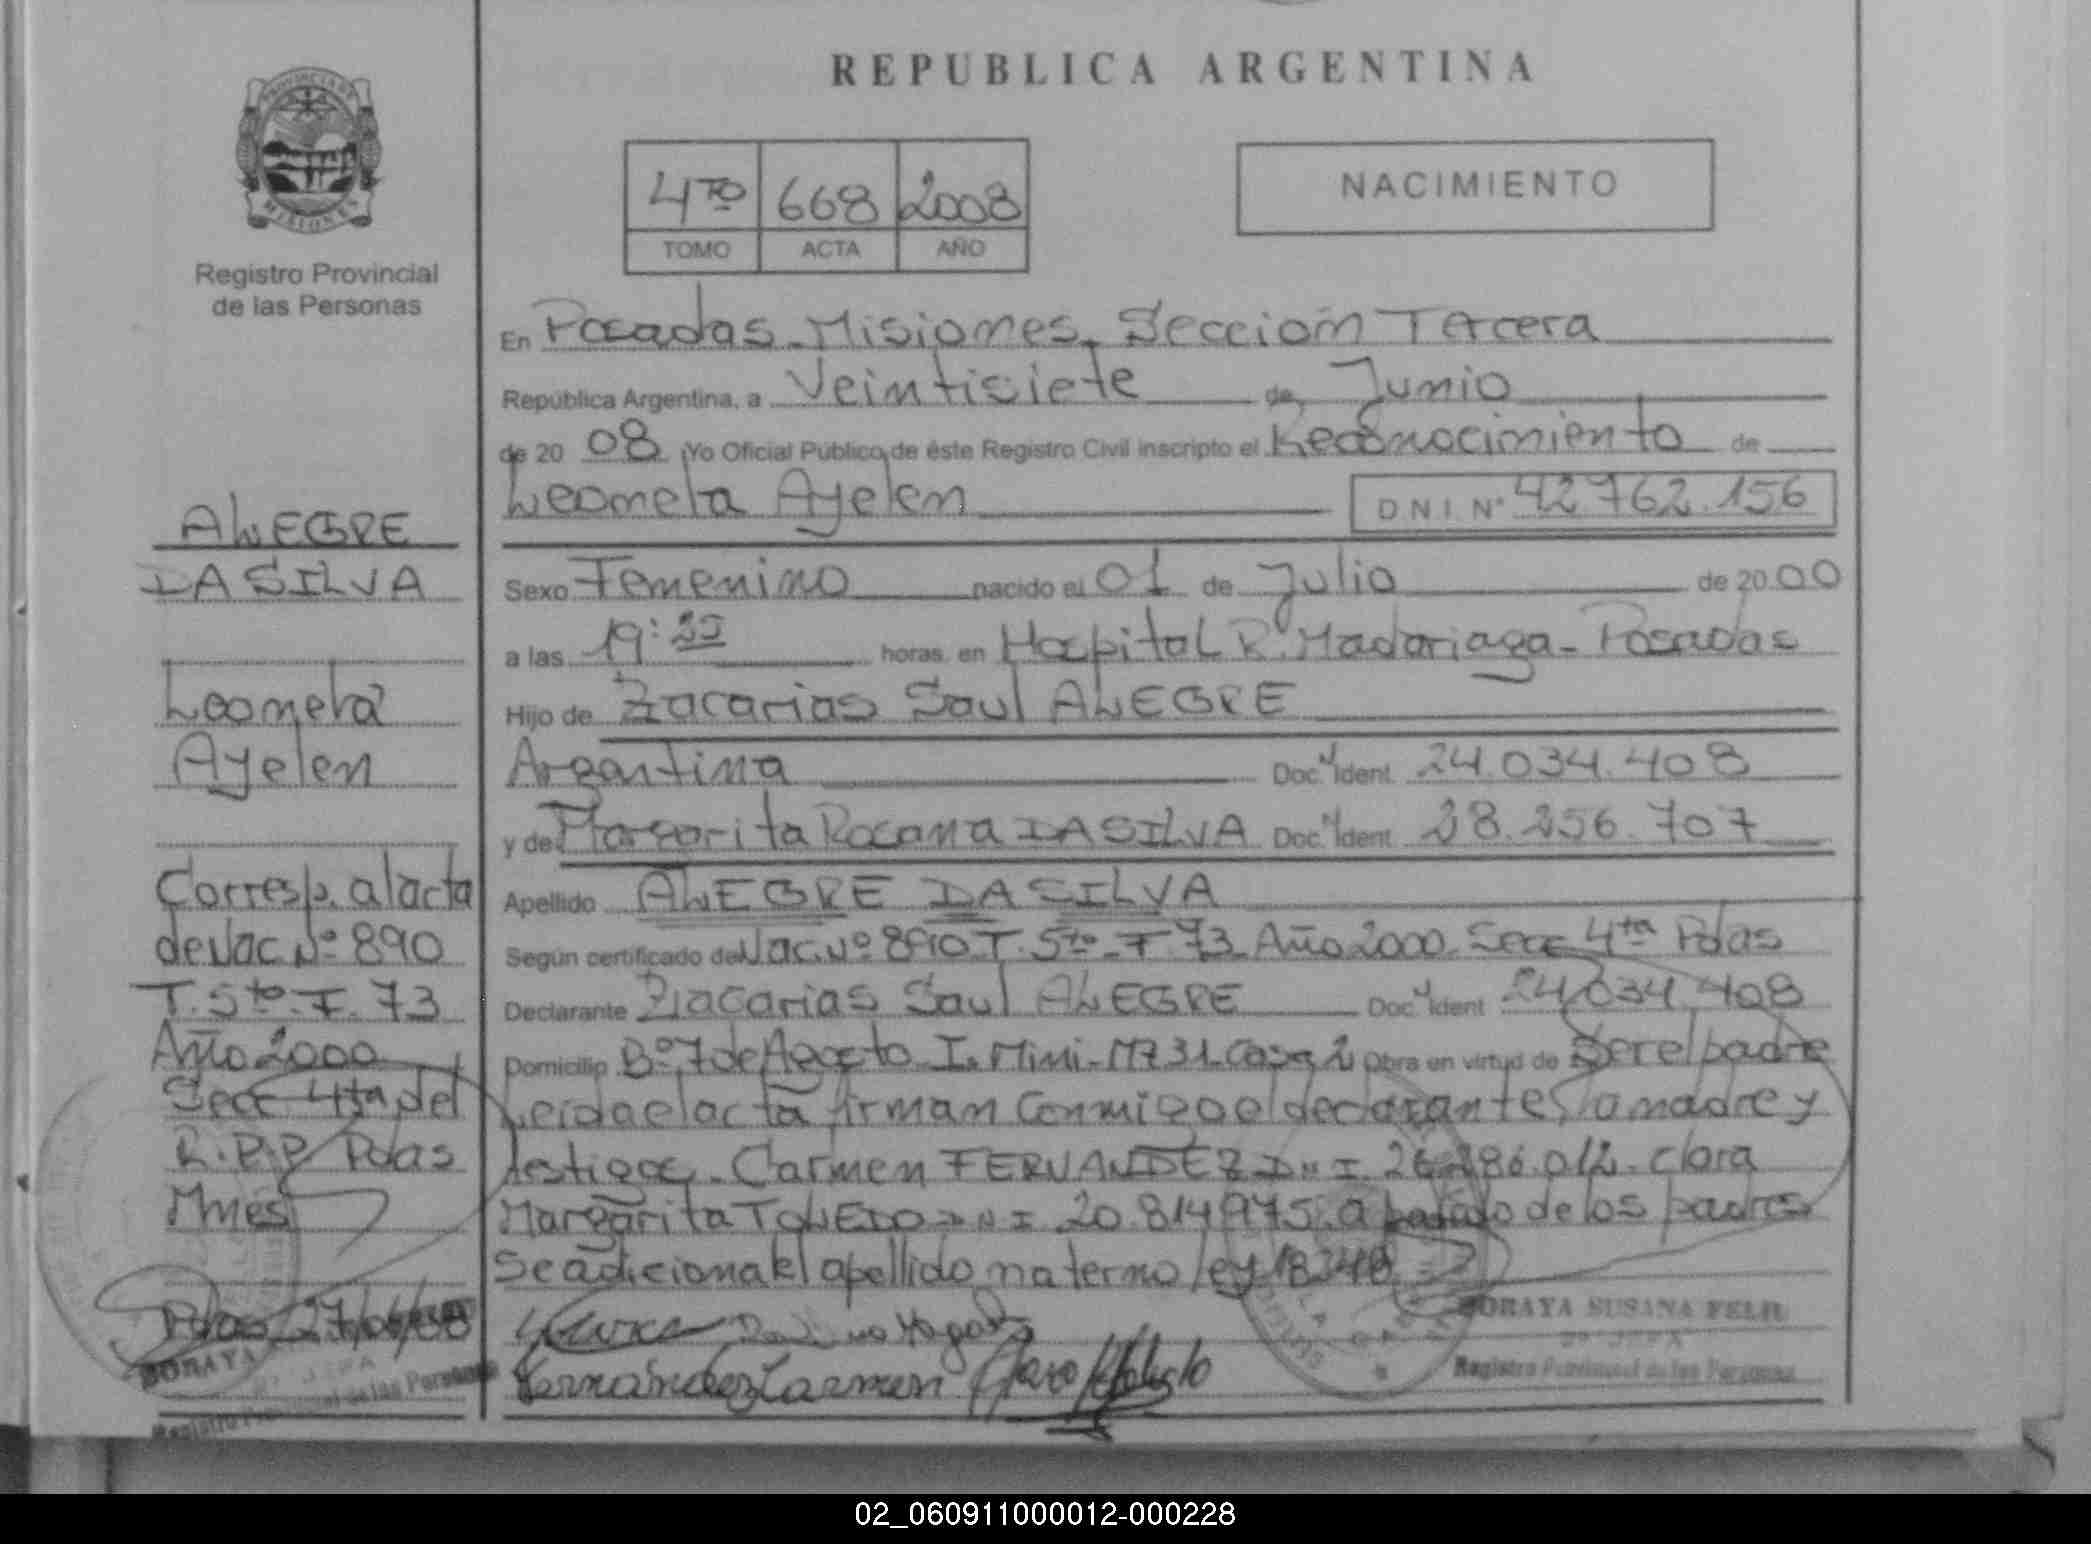 REPUBLICA ARGENTINA
PROVINCIA DE
MISIONES
Registro Provincial
de las Personas
4TO 668 2008
TOMO ACTA AÑO
NACIMIENTO
En Posadas - Misiones. Sección Tercera
República Argentina, a Veintisiete de Junio
de 20 08 Yo Oficial Público de éste Registro Civil inscripto el Reconocimiento de
Leonela Ayelen D N I N° 42.762.156
Sexo Femenino nacido el 01 de Julio de 20 00
a las 19: horas, en Hospital R. Madariaga - Posadas
Hijo de Zacarias Saul ALEGRE
Argentina Doc. Ident. 24.034.408
y de Margarita Rosana DA SILVA Doc. Ident. 28.256.707
Apellido ALEGRE DA SILVA
Según certificado de Nac. Nº 890 T. 5to - F. 73 Año 2000 Secc 4ta Pdas
Declarante Zacarias Saul ALEGRE Doc. Ident 24.034.408
Domicilio Bº 7 de Agosto I. Mini - MZ 31 Casa 2 Obra en virtud de Ser el padre
Leida el acta firman Conmigo el declarante, la madre y
testigos - Carmen FERNANDEZ D N I. 26.286.012 - Clara
Margarita TOLEDO D N I 20.814.975. a pedido de los padres
Se adiciona el apellido materno ley 18248
Fernandez Carmen
SORAYA SUSANA FELIU
2º JEFA
Registro Provincial de las Personas
ALEGRE
DA SILVA
Leonela
Ayelen
Corresp. al acta
de Nac Nº 890
T. 5to - F. 73
Año 2000
Secc 4ta del
R.P.P Pdas
Mnes
Pdas 27/06/08
SORAYA
JEFA
Registro Provincial de las Personas
02_060911000012-000228